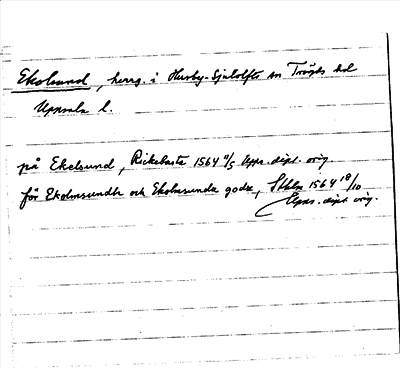 Ekolsund, herrg. i Husby-Sjutolfts sn Trögds hd
Uppsala l.
på Ekelsund, Rickebasta 1564 /5 Upps. dipl. orig.
för Ekolmsundh och Ekolasunda godz, Sthlm 1564 18/10
Upps. dipl. orig.